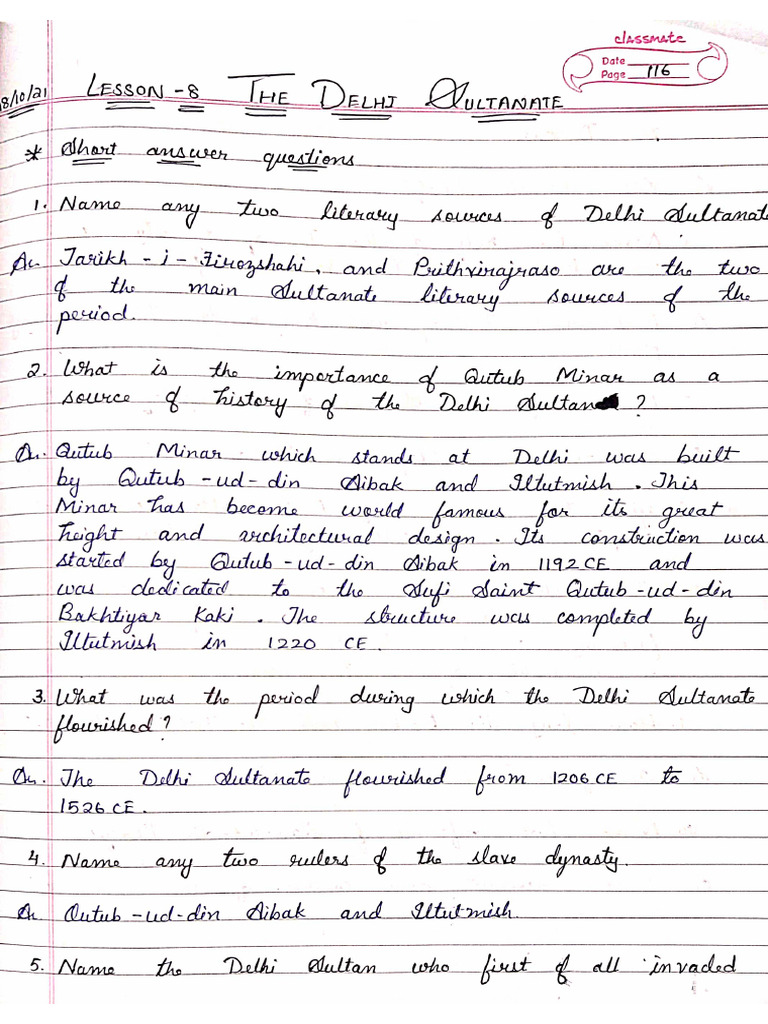 classmate
Date
Page 116
8/10/21 LESSON-8 THE DELHI SULTANATE
* Short answer questions
1. Name any two literary sources of Delhi Sultanate
An. Tarikh-i-Firozshahi, and Prithvirajraso are the two
of the main Sultanate literary sources of the
period.
2. What is the importance of Qutub Minar as a
source of history of the Delhi Sultan ?
An. Qutub Minar which stands at Delhi was built
by Qutub-ud-din Aibak and Iltutmish. This
Minar has become world famous for its great
height and architectural design. Its construction was
started by Qutub-ud-din Aibak in 1192 CE and
was dedicated to the Sufi Saint Qutub-ud-din
Bakhtiyar Kaki. The structure was completed by
Iltutmish in 1220 CE.
3. What was the period during which the Delhi Sultanate
flourished?
An. The Delhi Sultanate flourished from 1206 CE to
1526 CE.
4. Name any two rulers of the slave dynasty.
An Qutub-ud-din Aibak and Iltutmish.
5. Name the Delhi Sultan who first of all invaded